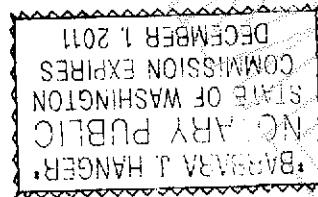 *BARBARA J. HANGER*
NOTARY PUBLIC
STATE OF WASHINGTON
COMMISSION EXPIRES
DECEMBER 1, 2011